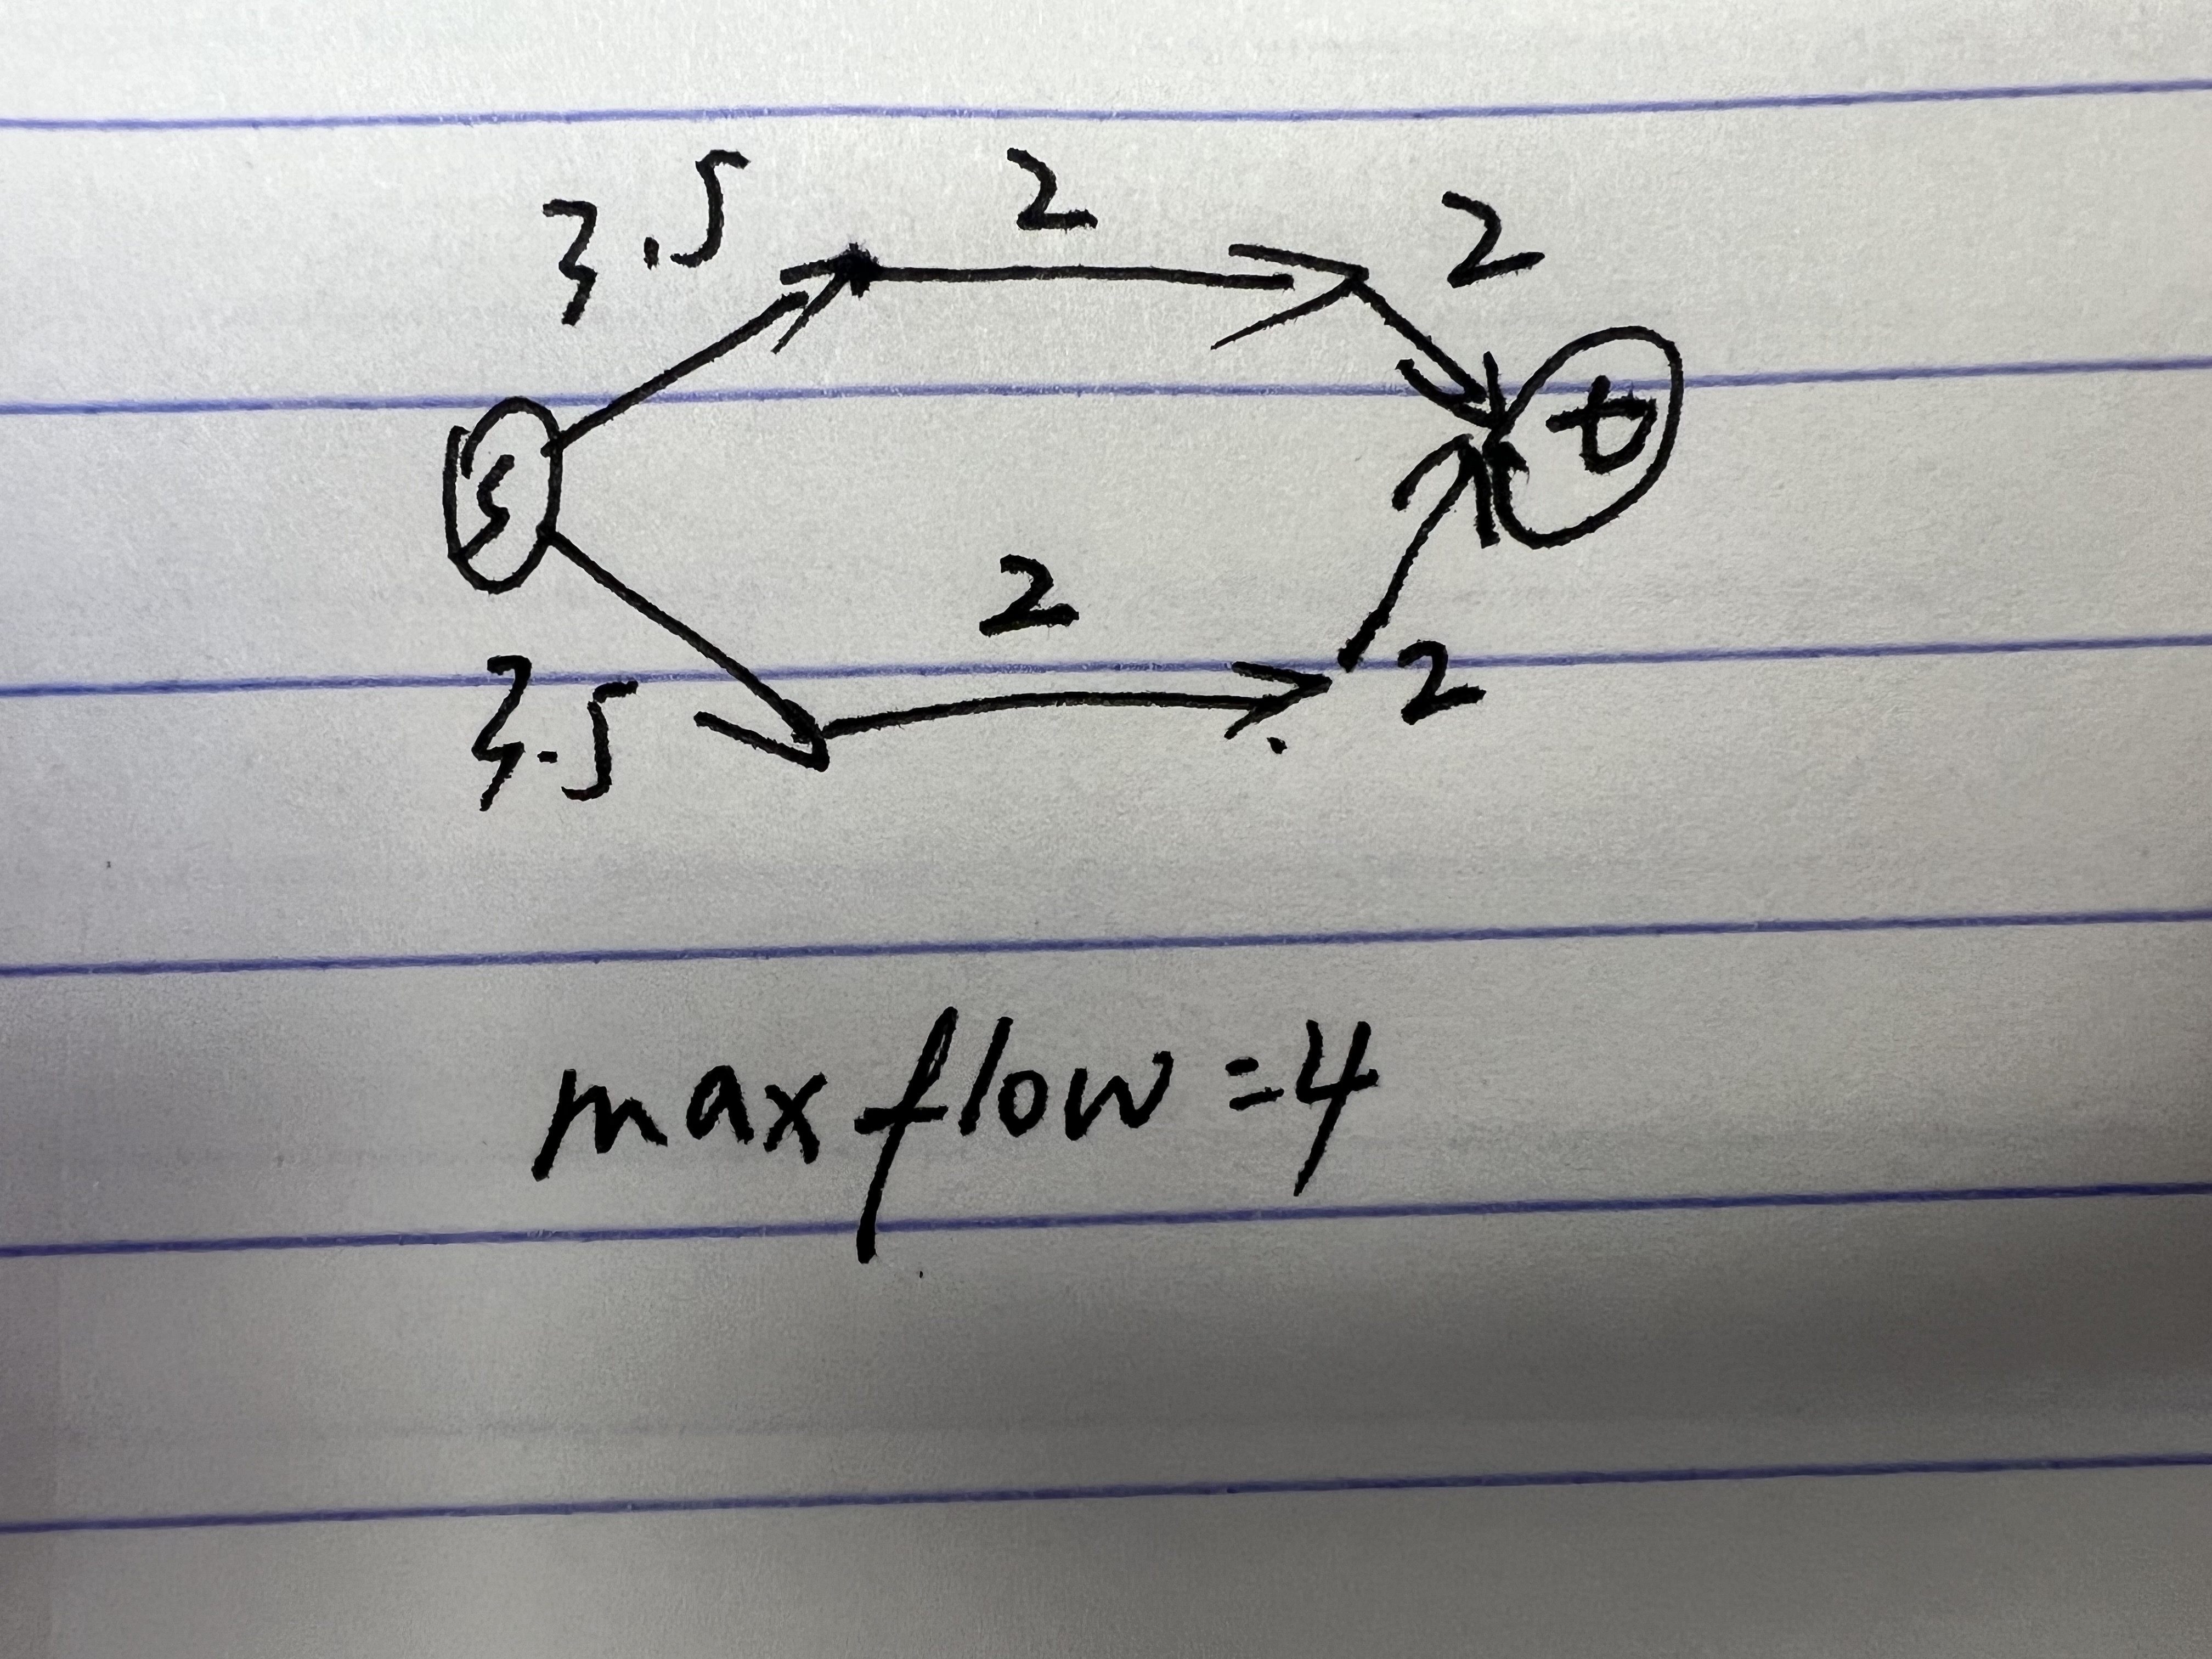 3.5 2 2
s t
2
3.5 2
max flow = 4